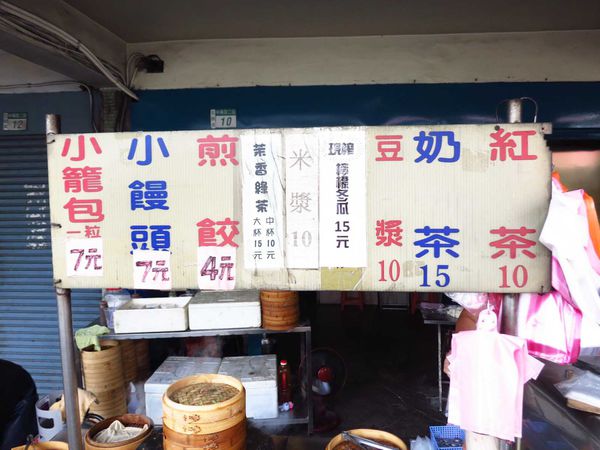 小籠包
一粒
7元
小饅頭
7元
煎餃
4元
茶香綠茶
大杯15元
中杯10元
米漿
10
現榨
檸檬冬瓜
15元
豆漿
10
奶茶
15
紅茶
10
12
10